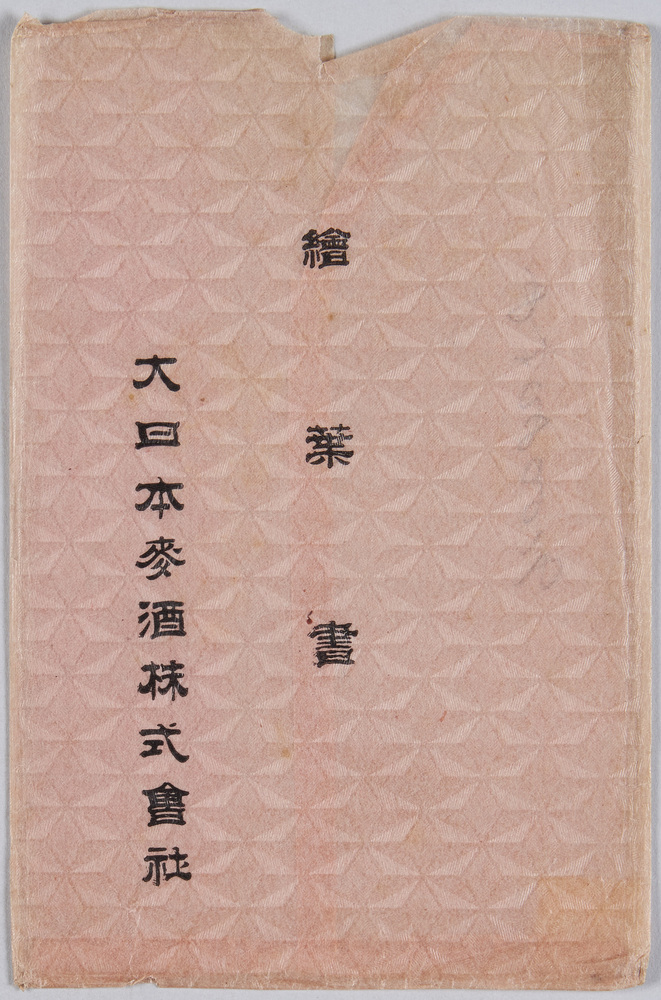 繪葉書
大日本麥酒株式會社